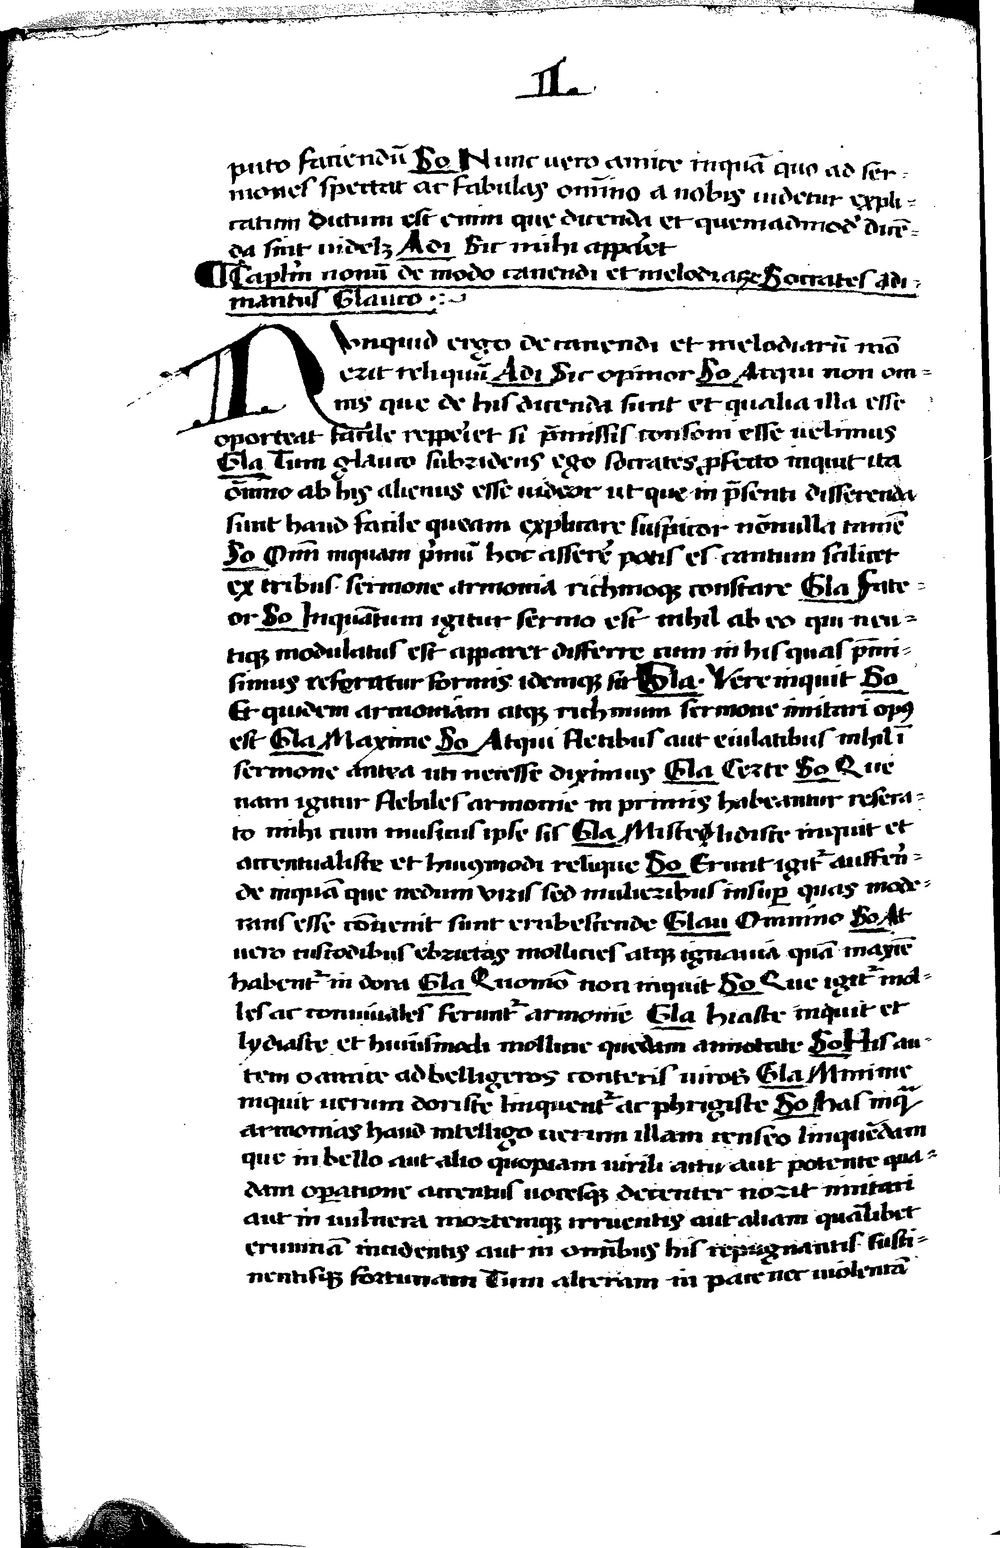 .II.
puto faciendū So Nunc uero amice inquā quo ad ser=
mones spectat ac fabulas om̄ino a nobis uidetur expli=
catum Dictum est enim que dicenda et quemadmod' dicē=
da sint uidelꝫ Adi Sic mihi apparet
Caplm̄ nonū de modo canendi et melodiaꝝ Socrates adi=
mantus Glauco
Nonquid ergo de canendi et melodiarū mō
erit reliquū Adi Sic opinor So Atqui non om=
nis que de his dicenda sunt et qualia illa esse
oporteat facile repperiet si p̄missis consoni esse uelimus
Gla Tum glauco subridens ego socrates ꝓfecto inquit ita
om̄ino ab his alienus esse uideor ut que in p̄senti disserenda
sunt haud facile queam explicare suspicor nōnulla tamē
So Om̄i inquam pimū hoc asserē potis es cantum scilicet
ex tribus sermone armonia richmoqꝫ constare Gla Fate=
or So Inquātum igitur sermo est nihil ab eo qui neu=
tiqꝫ modulatus est apparet differre cum in his quas p̄mi=
simus referatur formis idemqꝫ sit Gla Vere inquit So
Et quidem armoniam atqꝫ richmum sermone imitari opꝰ
est Gla Maxime So Atqui fletibus aut eiulatibus nihil ī
sermone antea uti necesse diximus Gla Certe So Que
nam igitur flebiles armonie in primis habeantur resera=
to mihi cum musicus ipse sis Gla Mistelidiste inquit et
accentualiste et huiꝰmodi relique So Erunt igit᷑ aufferē=
de inquā que nedum viris sed mulieribus insuꝑ quas mode=
rans esse cōuenit sunt erubescende Glau Omnino So At
uero custodibus ebrietas mollicies atqꝫ ignauia quā maxīe
habent᷑ in dora Gla Quomō non inquit So Que igit᷑ mol=
les ac conuiuales ferunt᷑ armonie Gla hiaste inquit et
lydiaste et huiusmodi mollicie quedam annotate So His au=
tem o amice ad belligeros conteris uiros Gla Minime
inquit uerum doriste linquent᷑ ac phrigiste So has inqꝫ
armonias haud intelligo uerum illam censeo linquēdam
que in bello aut alio quopiam uirili actu aut potente qua=
dam oꝑatione accentus uocesqꝫ decenter norit imitari
aut in uulnera mortemqꝫ irruentis aut aliam quālibet
erumnā incidentis aut in omībus his repugnantis susti=
nentisqꝫ fortunam Tum alteram in pace nec uiolentā